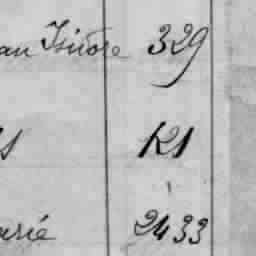 an Isidore 329
s 121
arié 2433